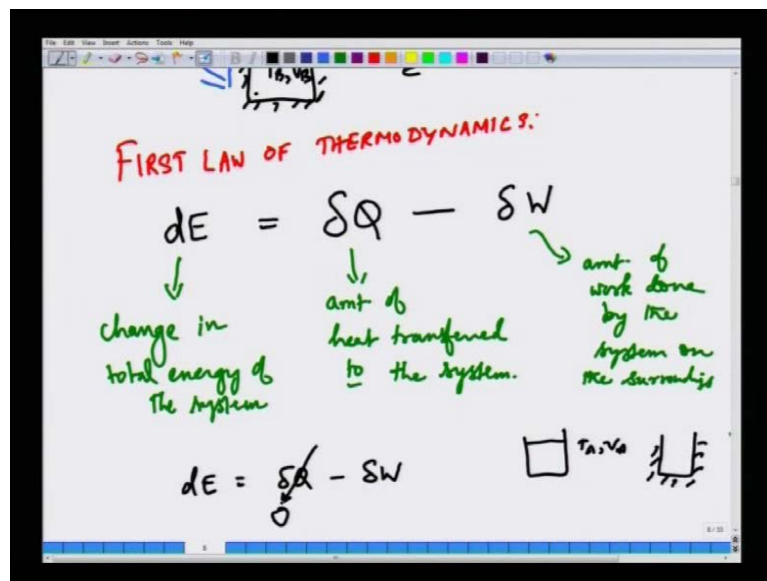 File Edit View Insert Actions Tools Help
T_B, V_B
E
FIRST LAW OF THERMODYNAMICS:
dE = δQ — δW
change in
total energy of
the system
amt of
heat transferred
to the system.
amt. of
work done
by the
system on
the surroundgs
T_A, V_A
dE = δQ - δW
0
8/33
8